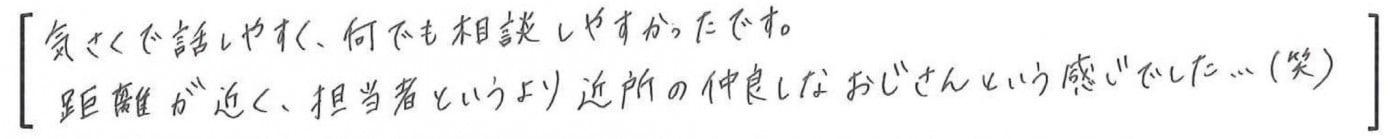 気さくで話しやすく、何でも相談しやすかったです。
距離が近く、担当者というより近所の仲良しなおじさんという感じでした…(笑)